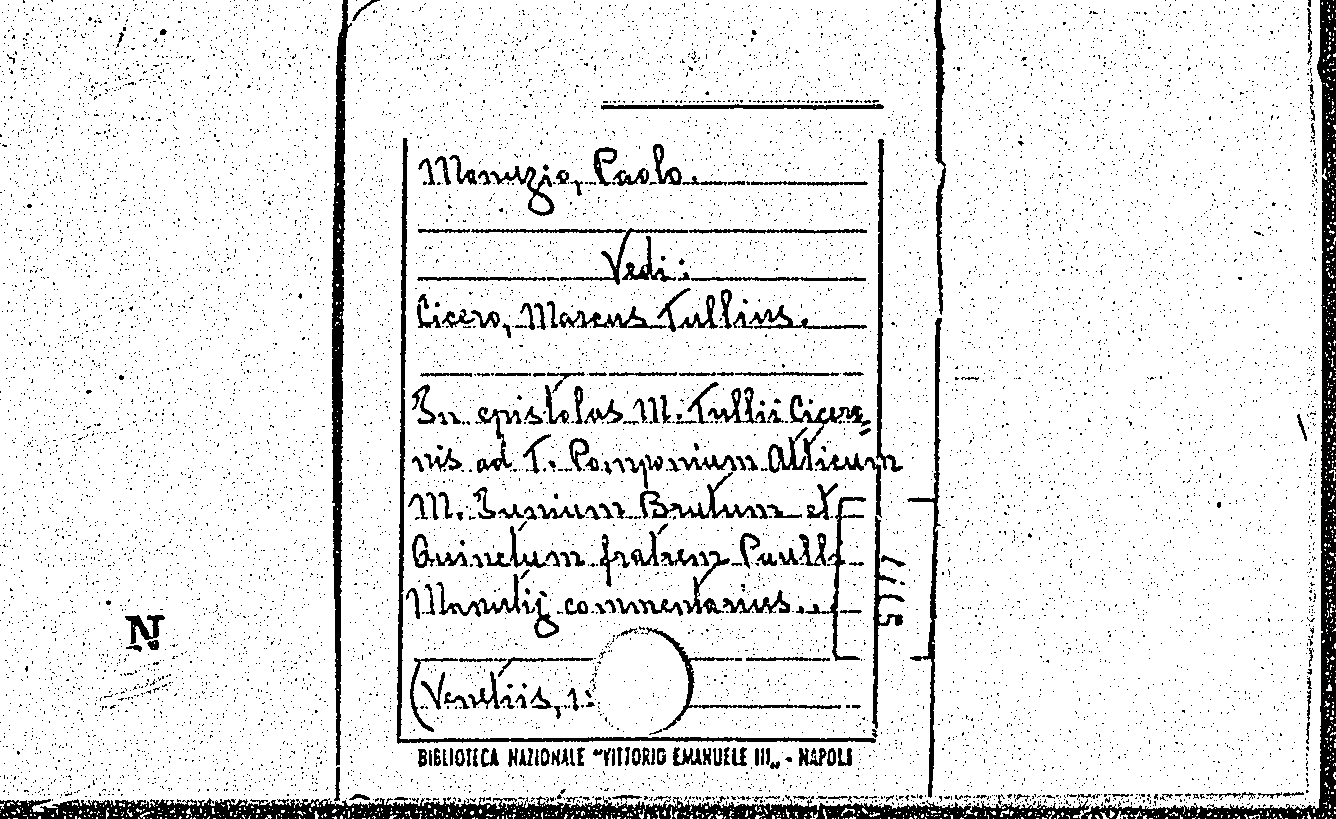 Manuzio, Paolo.
Vedi:
Cicero, Marcus Tullius.
In epistolas M. Tullii Cicero=
nis ad T. Pomponium Atticum
M. Iunium Brutum et
Quinctum fratrem Paulli
Manutij commentarius...
(Venetiis, 1
BIBLIOTECA NAZIONALE "VITTORIO EMANUELE III„ - NAPOLI
N